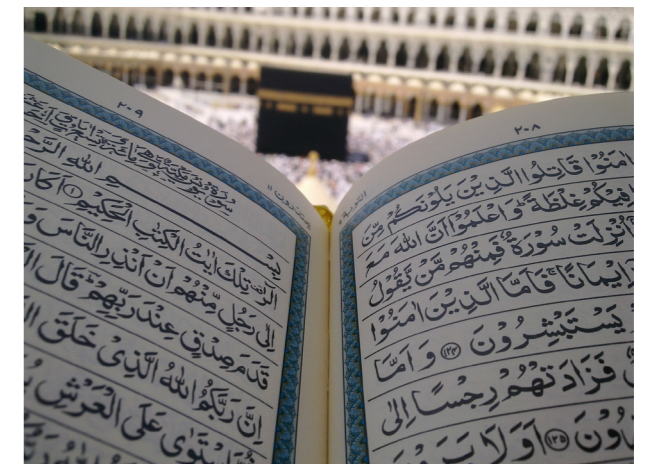 ٢٠٨
التوبة ٩
اٰمَنُوْا قَاتِلُوا الَّذِيْنَ يَلُوْنَكُمْ مِّنَ
فِيْكُمْ غِلْظَةً ؕ وَاعْلَمُوْۤا اَنَّ اللّٰهَ مَعَ
اُنْزِلَتْ سُوْرَةٌ فَمِنْهُمْ مَّنْ يَّقُوْلُ
اِيْمَانًا ۚ فَاَمَّا الَّذِيْنَ اٰمَنُوْا
يَسْتَبْشِرُوْنَ ﴿١٢٤﴾ وَاَمَّا
فَزَادَتْهُمْ رِجْسًا اِلٰى
﴿١٢٥﴾ اَوَلَا يَرَوْنَ
٢٠٩
يعتذرون ١١
بِسْمِ اللّٰهِ
الٓرٰ ۚ تِلْكَ اٰيٰتُ الْكِتٰبِ الْحَكِيْمِ ﴿١﴾ اَكَانَ
اِلٰى رَجُلٍ مِّنْهُمْ اَنْ اَنْذِرِ النَّاسَ وَ
قَدَمَ صِدْقٍ عِنْدَ رَبِّهِمْ ؕ قَالَ
اِنَّ رَبَّكُمُ اللّٰهُ الَّذِيْ خَلَقَ
اسْتَوٰى عَلَى الْعَرْشِ